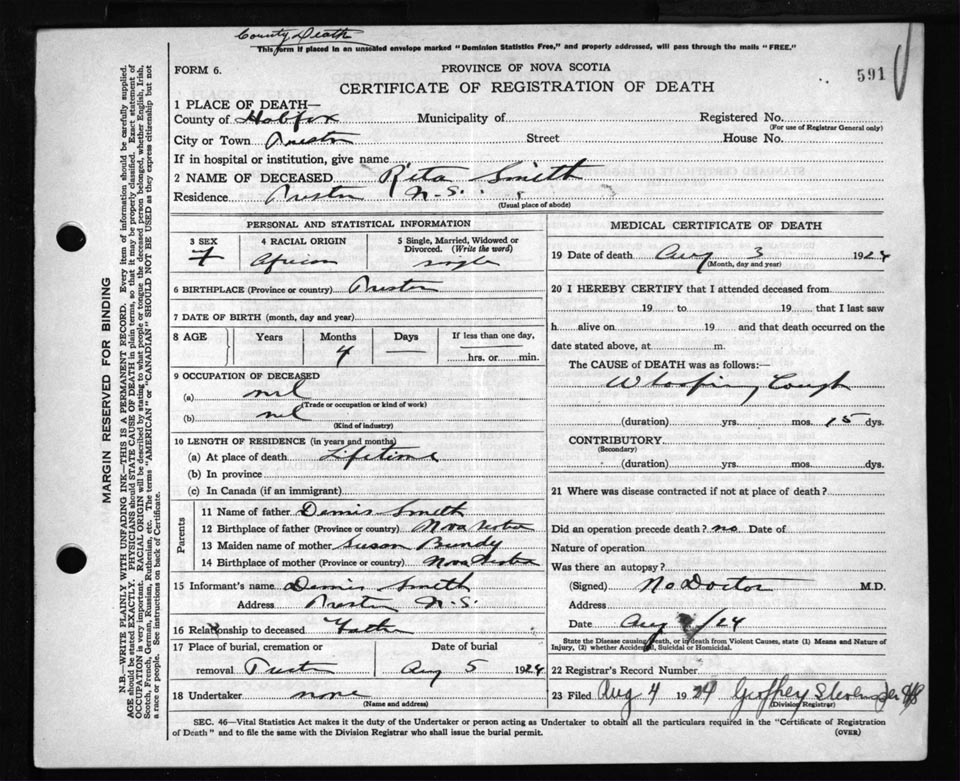 County Death
This form if placed in an unsealed envelope marked "Dominion Statistics Free," and property addressed, will pass through the mails "FREE."
FORM 6.
PROVINCE OF NOVA SCOTIA
591
CERTIFICATE OF REGISTRATION OF DEATH
1 PLACE OF DEATH—
County of Halifax Municipality of Registered No.
(For use of Registrar General only)
City or Town Preston Street House No.
If in hospital or institution, give name
2 NAME OF DECEASED Rita Smith
Residence Preston N.S.
(Usual place of abode)
PERSONAL AND STATISTICAL INFORMATION
3 SEX 4 RACIAL ORIGIN 5 Single, Married, Widowed or Divorced. (Write the word)
F African single
6 BIRTHPLACE (Province or country) Preston
7 DATE OF BIRTH (month, day and year)
8 AGE Years Months Days If less than one day,
4 —
hrs. or min.
9 OCCUPATION OF DECEASED
(a) nil
(Trade or occupation or kind of work)
(b) nil
(Kind of industry)
10 LENGTH OF RESIDENCE (in years and months)
(a) At place of death Lifetime
(b) In province
(c) In Canada (if an immigrant)
Parents
11 Name of father Dennis Smith
12 Birthplace of father (Province or country) Nova Scotia
13 Maiden name of mother Susan Bundy
14 Birthplace of mother (Province or country) Nova Scotia
15 Informant's name Dennis Smith
Address Preston N.S.
16 Relationship to deceased Father
17 Place of burial, cremation or Date of burial
removal Preston Aug 5 1924
18 Undertaker none
(Name and address)
MEDICAL CERTIFICATE OF DEATH
19 Date of death Aug 3 1924
(Month, day and year)
20 I HEREBY CERTIFY that I attended deceased from
19 to 19 that I last saw
h alive on 19 and that death occurred on the
date stated above, at m.
The CAUSE of DEATH was as follows:—
Whooping Cough
(duration) yrs. mos. 15 dys.
CONTRIBUTORY
(Secondary)
(duration) yrs. mos. dys.
21 Where was disease contracted if not at place of death?
Did an operation precede death? no Date of
Nature of operation
Was there an autopsy?
(Signed) No Doctor M.D.
Address
Date Aug /24
State the Disease causing Death, or in death from Violent Causes, state (1) Means and Nature of
Injury, (2) whether Accidental, Suicidal or Homicidal.
22 Registrar's Record Number
23 Filed Aug 4 1924 Geoffrey Stevens
(Division Registrar)
SEC. 46—Vital Statistics Act makes it the duty of the Undertaker or person acting as Undertaker to obtain all the particulars required in the "Certificate of Registration
of Death" and to file the same with the Division Registrar who shall issue the burial permit.
(OVER)
MARGIN RESERVED FOR BINDING
N.B.—WRITE PLAINLY WITH UNFADING INK—THIS IS A PERMANENT RECORD. Every item of information should be carefully supplied.
AGE should be stated EXACTLY. PHYSICIANS should STATE CAUSE OF DEATH in plain terms, so that it may be properly classified. Exact statement of
OCCUPATION is very important. RACIAL ORIGIN will be described by stating to what people or tongue the deceased person belonged, whether English, Irish,
Scotch, French, German, Russian, Ruthenian, etc. The terms "AMERICAN" or "CANADIAN" SHOULD NOT BE USED as they express citizenship but not
a race or people. See instructions on back of Certificate.